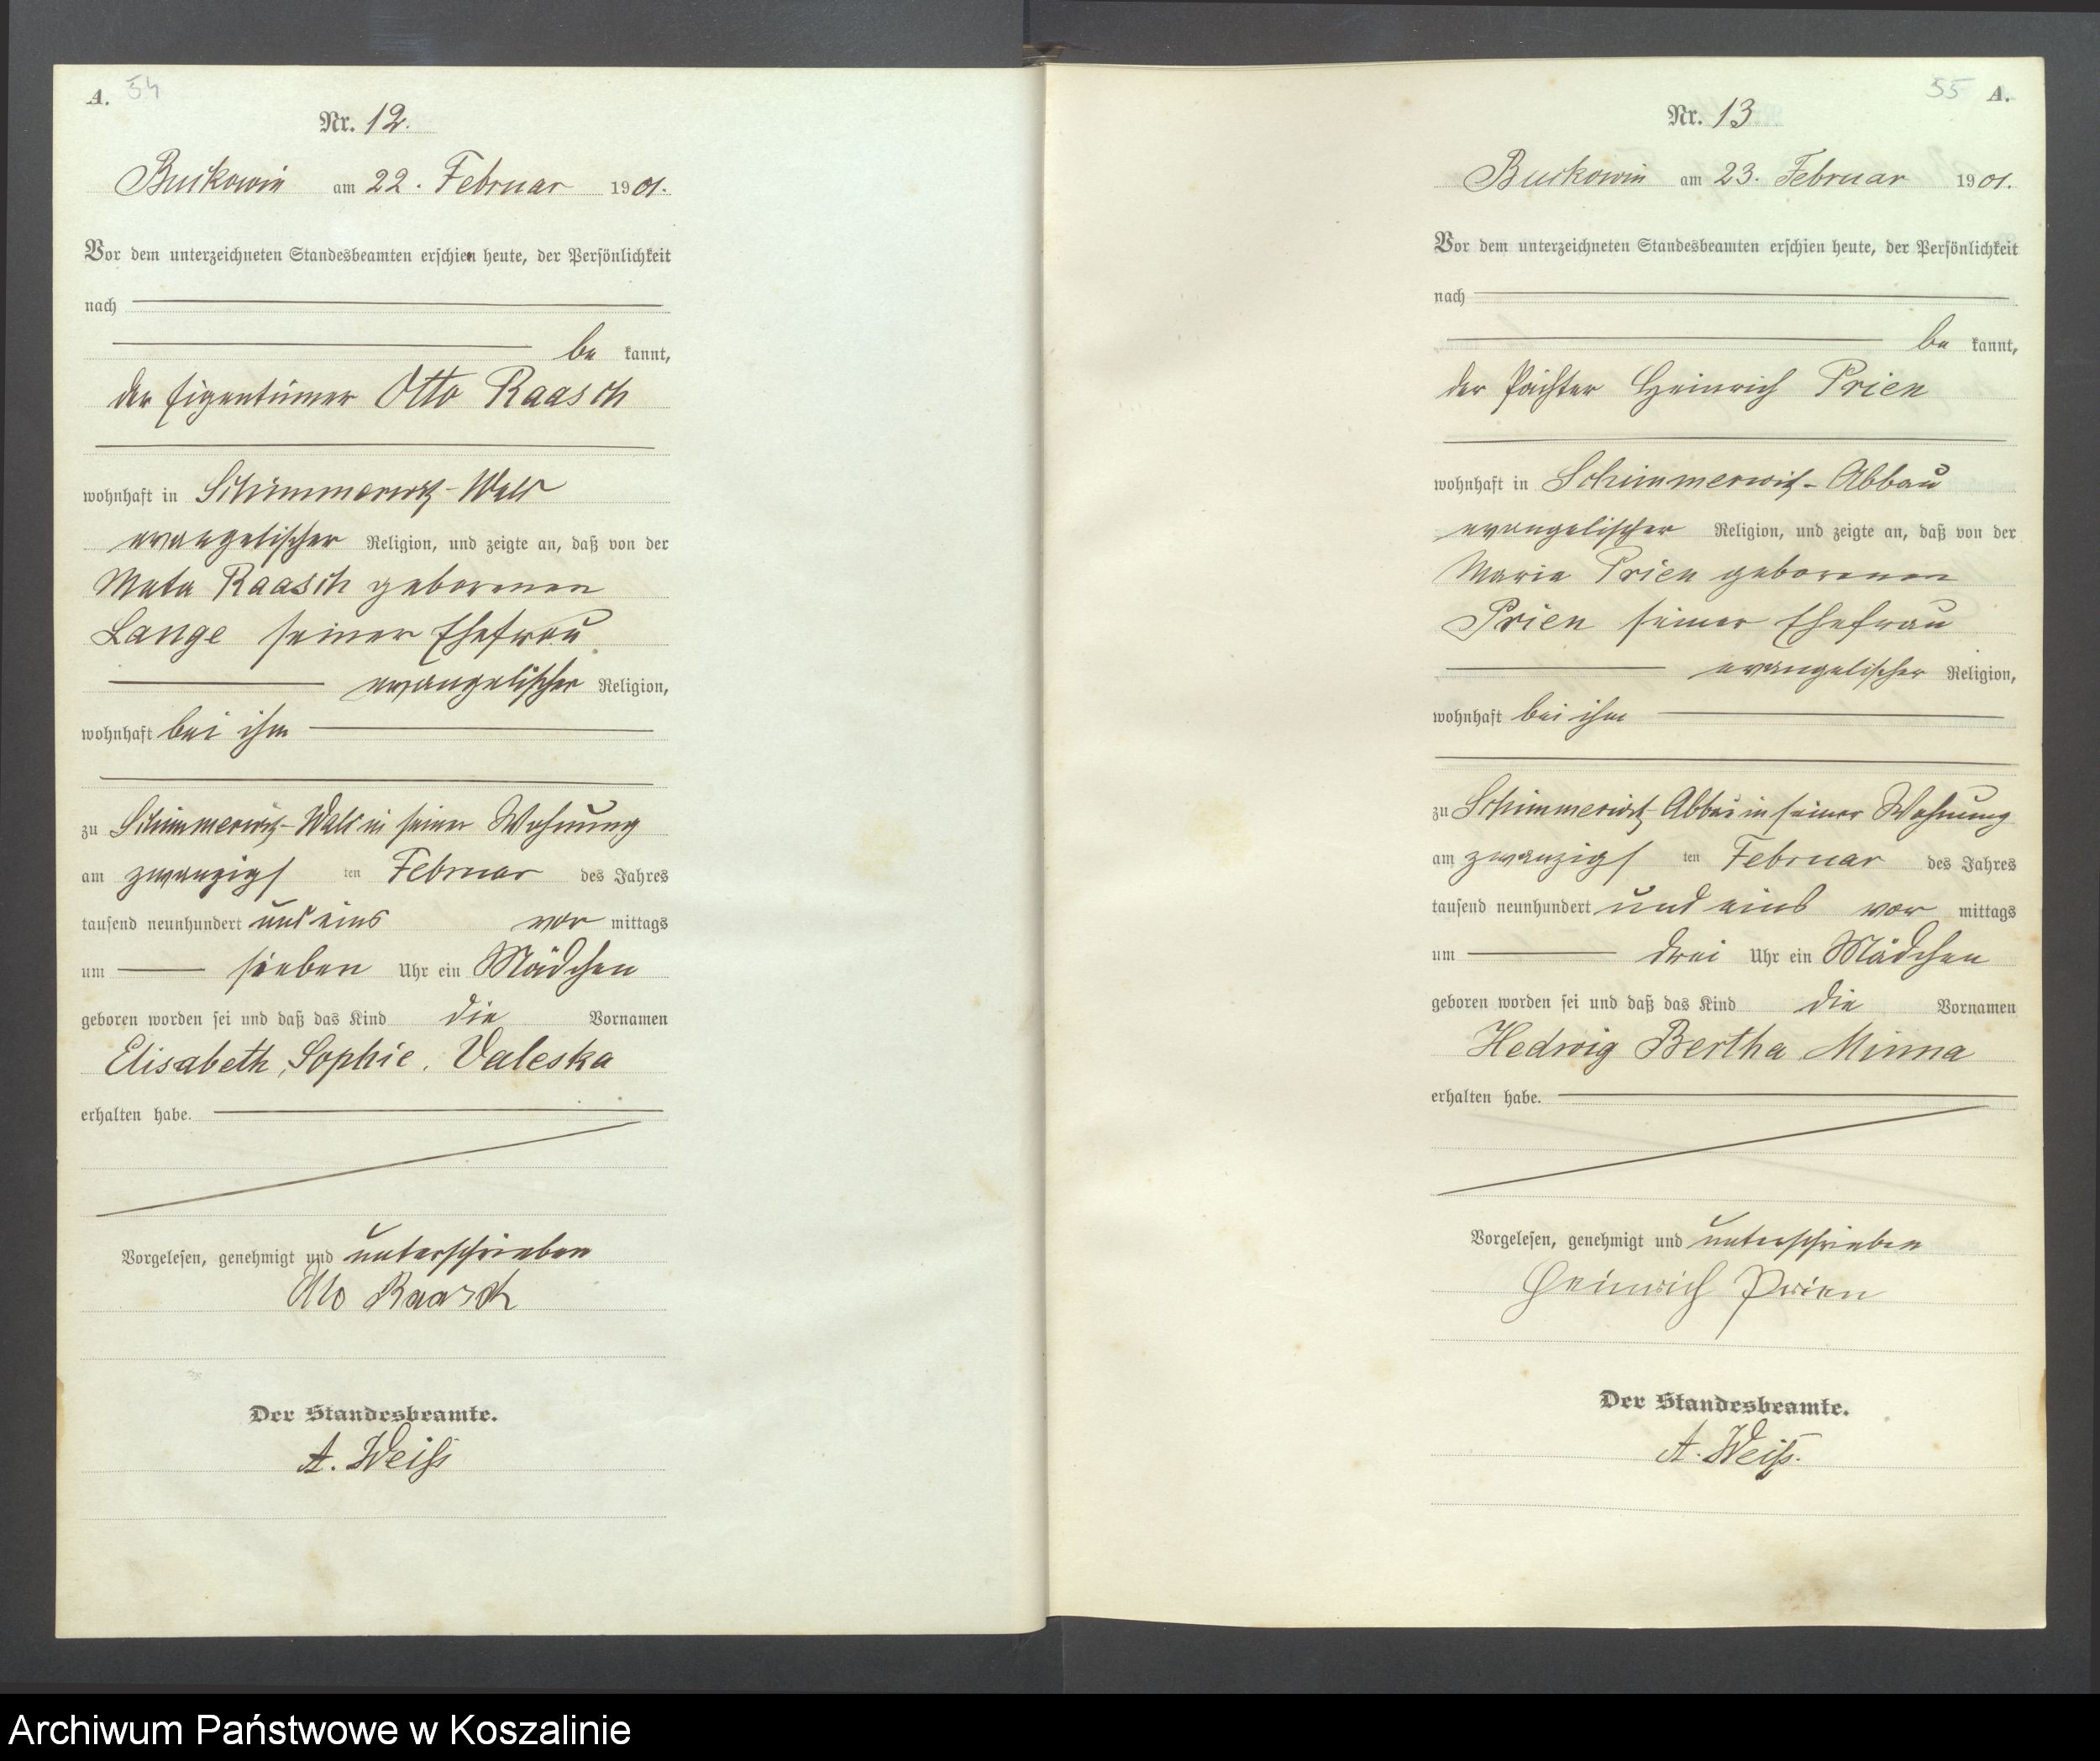 A. 54
Nr. 12.
Buckowin am 22. Februar 1901.
Vor dem unterzeichneten Standesbeamten erschien heute, der Persönlichkeit
nach
be kannt,
der Eigentümer Otto Raasch
wohnhaft in Schimmerwitz-Wald
evangelischer Religion, und zeigte an, daß von der
Meta Raasch geborenen
Lange seiner Ehefrau
evangelischer Religion,
wohnhaft bei ihm
zu Schimmerwitz-Wald in seiner Wohnung
am zwanzigs ten Februar des Jahres
tausend neunhundert und eins vor mittags
um sieben Uhr ein Mädchen
geboren worden sei und daß das Kind die Vornamen
Elisabeth, Sophie, Valeska
erhalten habe.
Vorgelesen, genehmigt und unterschrieben
Otto Raasch
Der Standesbeamte.
A. Weiß
55 A.
Nr. 13
Buckowin am 23. Februar 1901.
Vor dem unterzeichneten Standesbeamten erschien heute, der Persönlichkeit
nach
be kannt,
der Pächter Heinrich Prien
wohnhaft in Schimmerwitz-Abbau
evangelischer Religion, und zeigte an, daß von der
Marie Prien geborenen
Prien seiner Ehefrau
evangelischer Religion,
wohnhaft bei ihm
zu Schimmerwitz-Abbau in seiner Wohnung
am zwanzigs ten Februar des Jahres
tausend neunhundert und eins vor mittags
um drei Uhr ein Mädchen
geboren worden sei und daß das Kind die Vornamen
Hedwig Bertha Minna
erhalten habe.
Vorgelesen, genehmigt und unterschrieben
Heinrich Prien
Der Standesbeamte.
A. Weiß.
Archiwum Państwowe w Koszalinie